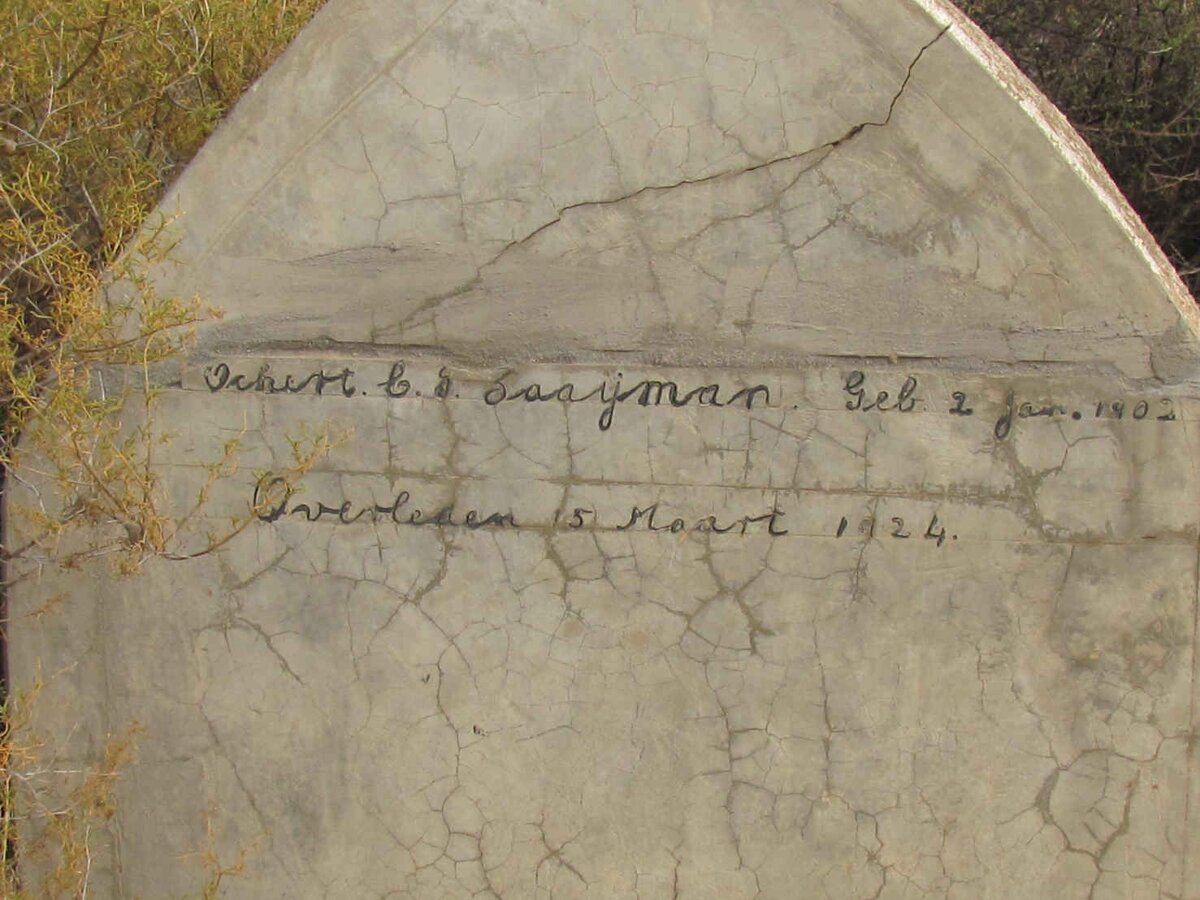 Ochert. C. J. Saayman. Geb. 2 Jan. 1902
Overleden 15 Maart 1924.